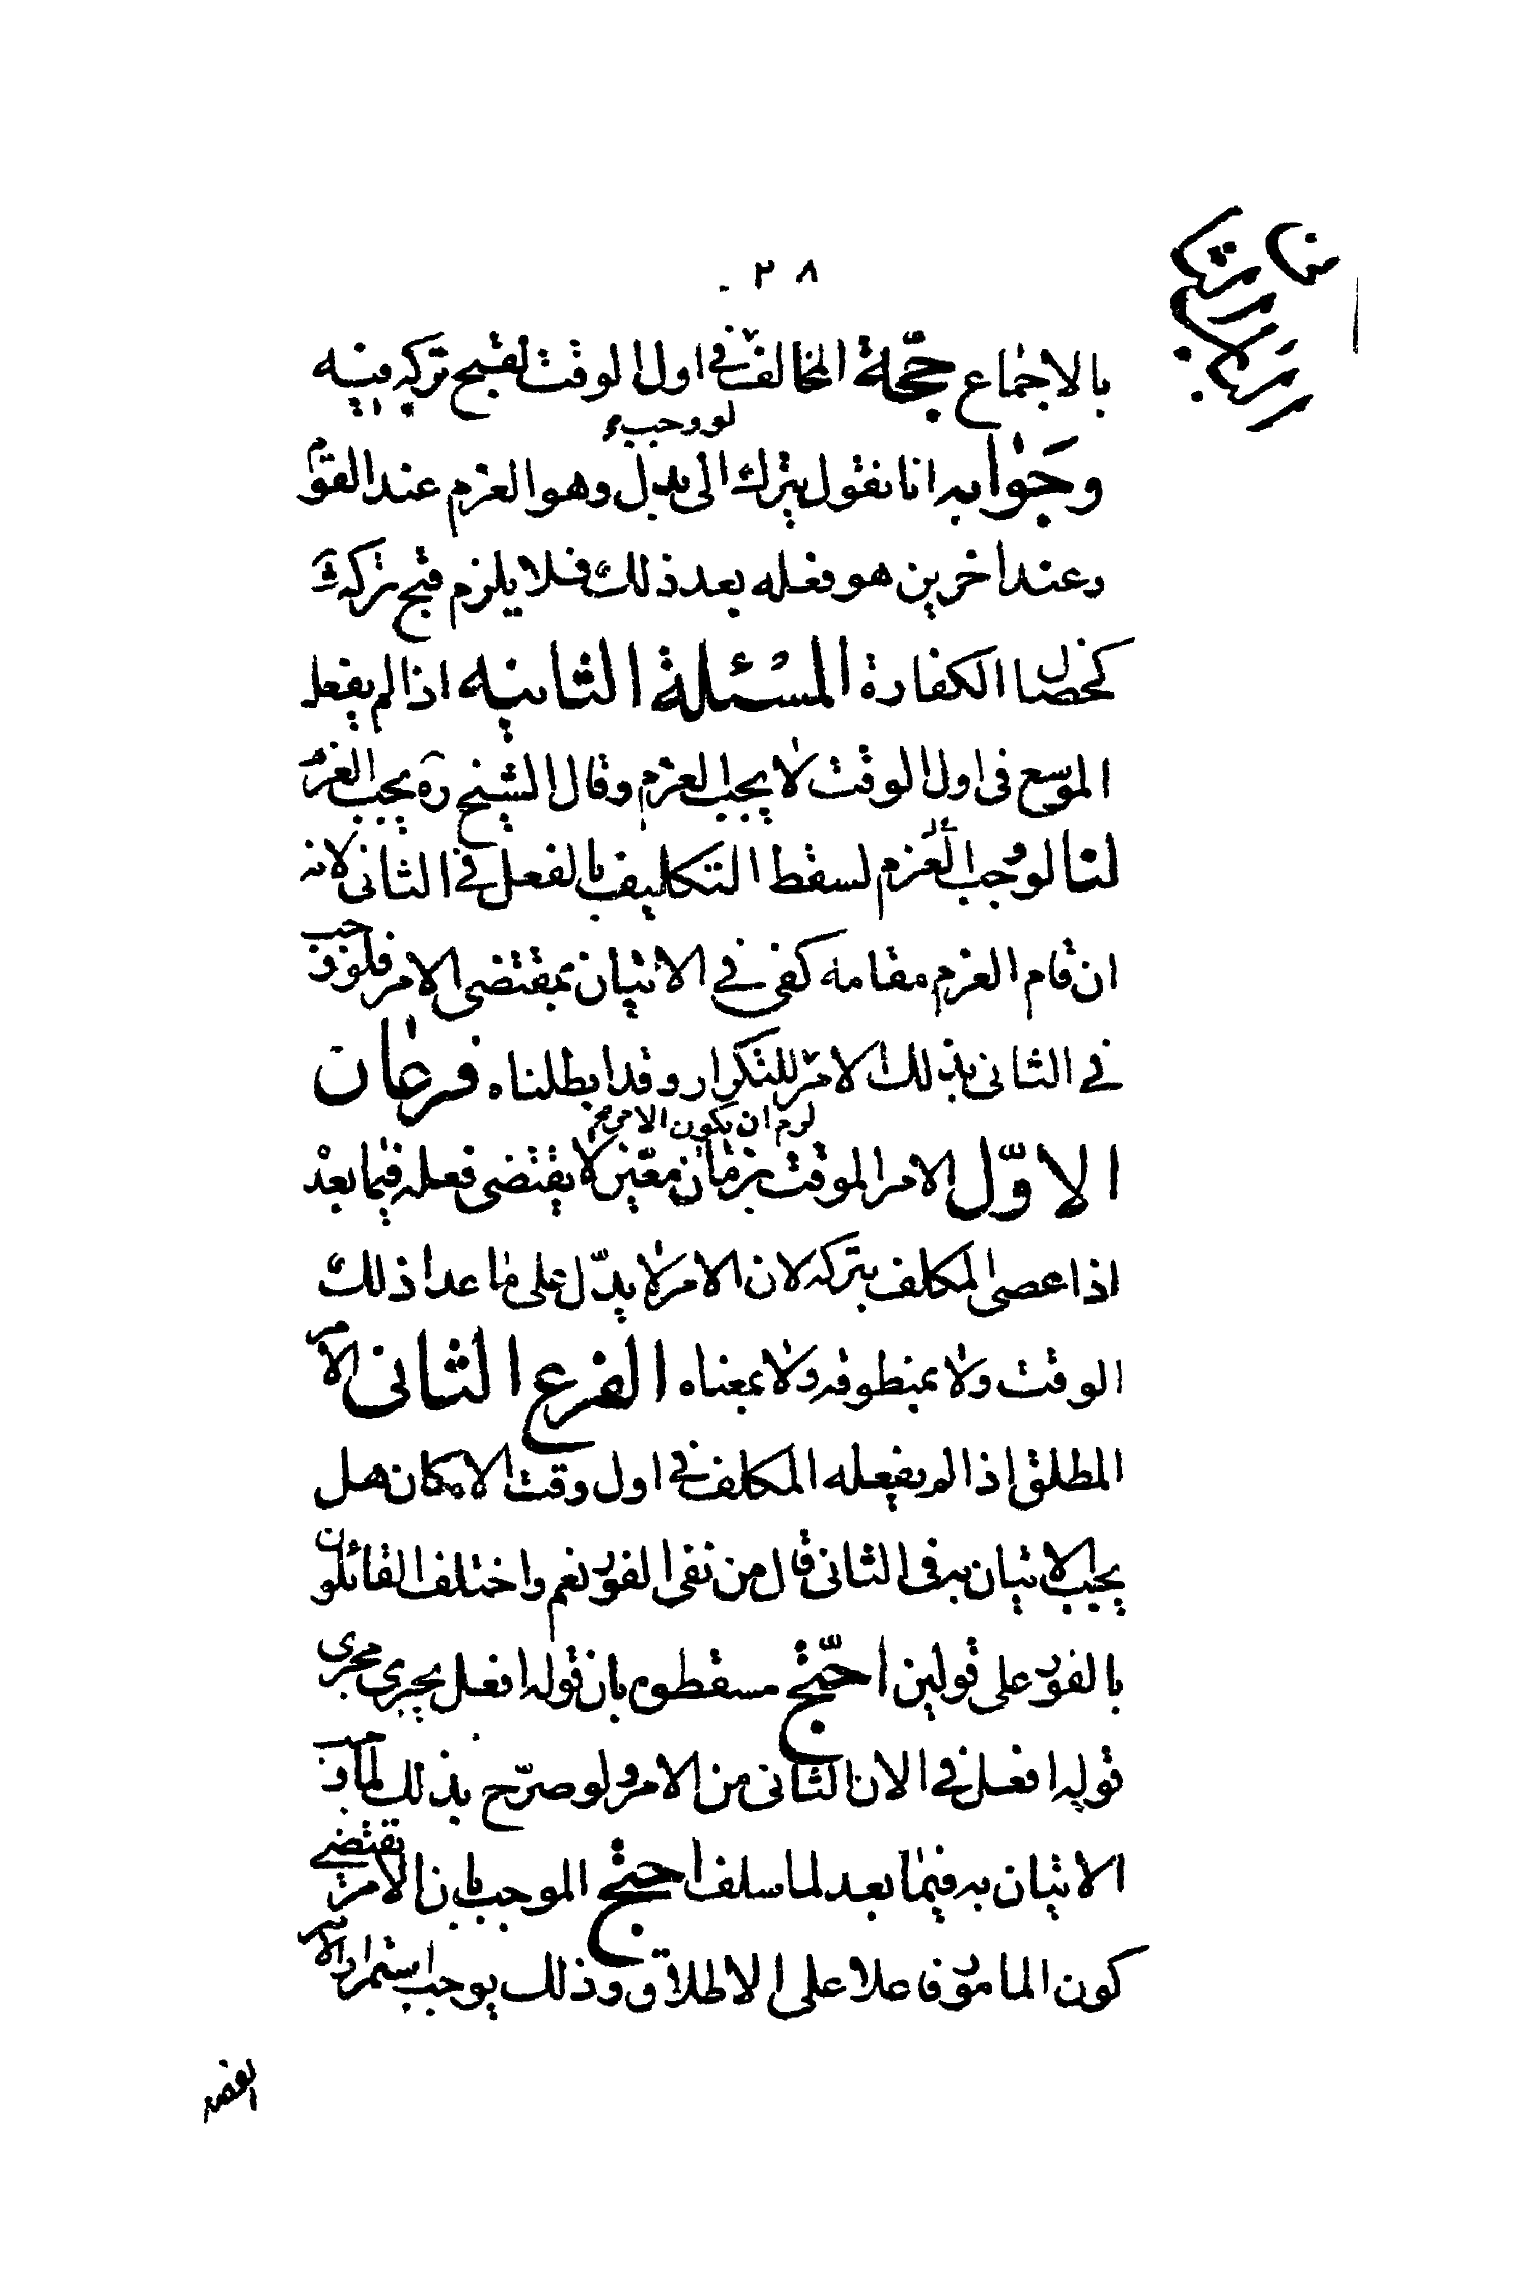 ٢٨
بالاجماع حجّة المخالف لو وجب فى اول الوقت لقبح تركه فيه
وجوابه انا نقول يترك الى بدل وهو العزم عند القوم
وعند اخرين هو فعله بعد ذلك فلا يلزم قبح تركه ثم
كخصال الكفارة المسئلة الثانيه اذا لم يفعل
الموسع فى اول الوقت لا يجب العزم وقال الشيخ ره يجب العزم
لنا لو وجب العزم لسقط التكليف بالفعل فى الثانى لانه
ان قام العزم مقامه كفى فى الاتيان بمقتضى الامر فلو وجب
فى الثانى بذلك الامر لزم ان يكون الامر للتكرار وقد ابطلناه فرعان
الاوّل الامر الموقت بزمان معيّن لا يقتضى فعله فيما بعد
اذا عصى المكلف بتركه لان الامر لا يدّل على ما عدا ذلك
الوقت ولا بمنطوقه ولا بمعناه الفرع الثانى الامر
المطلق اذا لم يفعله المكلف فى اول وقت الامكان هل
يجب الاتيان به فى الثانى قال من نفى الفور نعم واختلف القائلون
بالفور على قولين احتج مسقطوه بان قوله افعل يجرى مجرى
قوله افعل فى الان الثانى من الامر ولو صرّح بذلك لما وجب
الاتيان به فيما بعد لما سلف احتج الموجب بان الامر يقتضى
كون المامور فاعلا على الاطلاق وذلك يوجب استمرار الامر